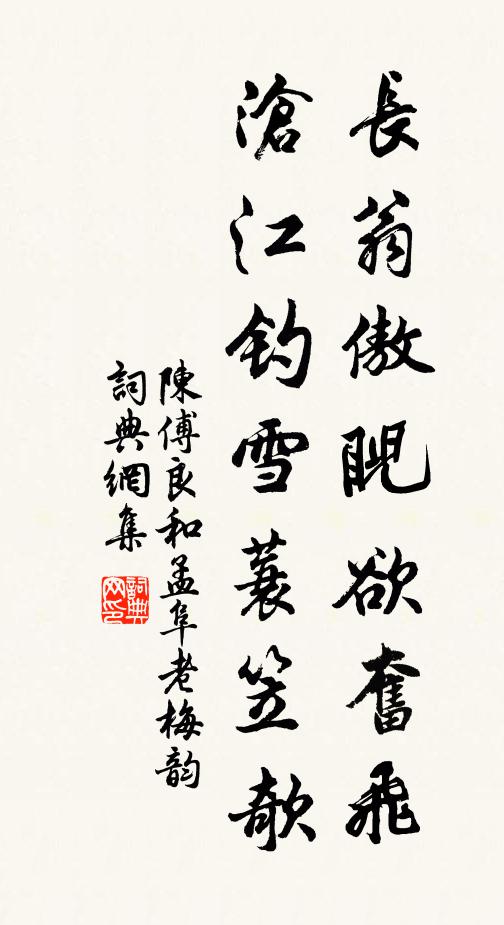 長翁傲睨欲奮飛
滄江釣雪蓑笠欹
陳傅良和孟阜老梅韵
詞典網集
詞典網印